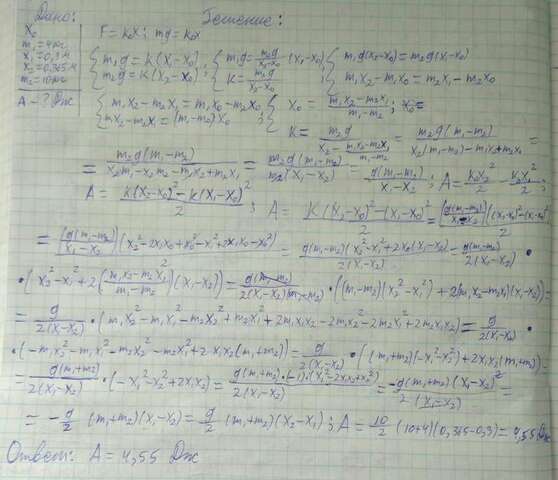 Дано: Решение:
x₀
m₁ = 4 кг
x₁ = 0,3 м
x₂ = 0,365 м
m₂ = 10 кг
A - ? Дж
F = k₀x; mg = k₀x
{ m₁g = k(x₁-x₀) ; { m₁g = m₂g/(x₂-x₀) (x₁-x₀) { m₁g(x₂-x₀) = m₂g(x₁-x₀)
{ m₂g = k(x₂-x₀) { k = m₂g/(x₂-x₀) ; { m₁x₂ - m₁x₀ = m₂x₁ - m₂x₀
{ m₁x₂ - m₂x₁ = m₁x₀ - m₂x₀ ; { x₀ = (m₁x₂ - m₂x₁)/(m₁-m₂) ;
{ m₁x₂ - m₂x₁ = (m₁-m₂)x₀ ; { k = m₂g/(x₂ - (m₁x₂-m₂x₁)/(m₁-m₂)) = m₂g(m₁-m₂)/(x₂(m₁-m₂) - m₁x₂+m₂x₁) =
= m₂g(m₁-m₂)/(x₂m₁-x₂m₂-m₁x₂+m₂x₁) = m₂g(m₁-m₂)/(m₂(x₁-x₂)) = g(m₁-m₂)/(x₁-x₂) ; A = k₀x₂²/2 - k₀x₁²/2 ;
A = (k(x₂-x₀)² - k(x₁-x₀)²)/2 ; A = k(x₂-x₀)² - (x₁-x₀)²/2 =
= (g(m₁-m₂)/(x₁-x₂))(x₂² - 2x₂x₀ + x₀² - x₁² + 2x₁x₀ - x₀²) = g(m₁-m₂)(x₂²-x₁²+2x₀(x₁-x₂))/2(x₁-x₂) = g(m₁-m₂)/2(x₁-x₂) •
• (x₂² - x₁² + 2((m₁x₂-m₂x₁)/(m₁-m₂))(x₁-x₂)) = g(m₁-m₂)/2(x₁-x₂)(m₁-m₂) • ((m₁-m₂)(x₂²-x₁²) + 2(m₁x₂-m₂x₁)(x₁-x₂)) =
= g/2(x₁-x₂) • (m₁x₂² - m₁x₁² - m₂x₂² + m₂x₁² + 2m₁x₁x₂ - 2m₁x₂² - 2m₂x₁² + 2m₂x₁x₂) = g/2(x₁-x₂) •
• (-m₁x₂² - m₁x₁² - m₂x₂² - m₂x₁² + 2x₁x₂(m₁+m₂)) = g/2(x₁-x₂) • ((m₁+m₂)(-x₁²-x₂²) + 2x₁x₂(m₁+m₂)) =
= g(m₁+m₂)/2(x₁-x₂) • (-x₁²-x₂²+2x₁x₂) = g(m₁+m₂)•(-1)•(x₁²-2x₁x₂+x₂²)/2(x₁-x₂) = -g(m₁+m₂)(x₁-x₂)²/2(x₁-x₂) =
= -g/2 (m₁+m₂)(x₁-x₂) = g/2 (m₁+m₂)(x₂-x₁) ; A = 10/2 (10+4)(0,365-0,3) = 4,55 Дж
Ответ: A = 4,55 Дж